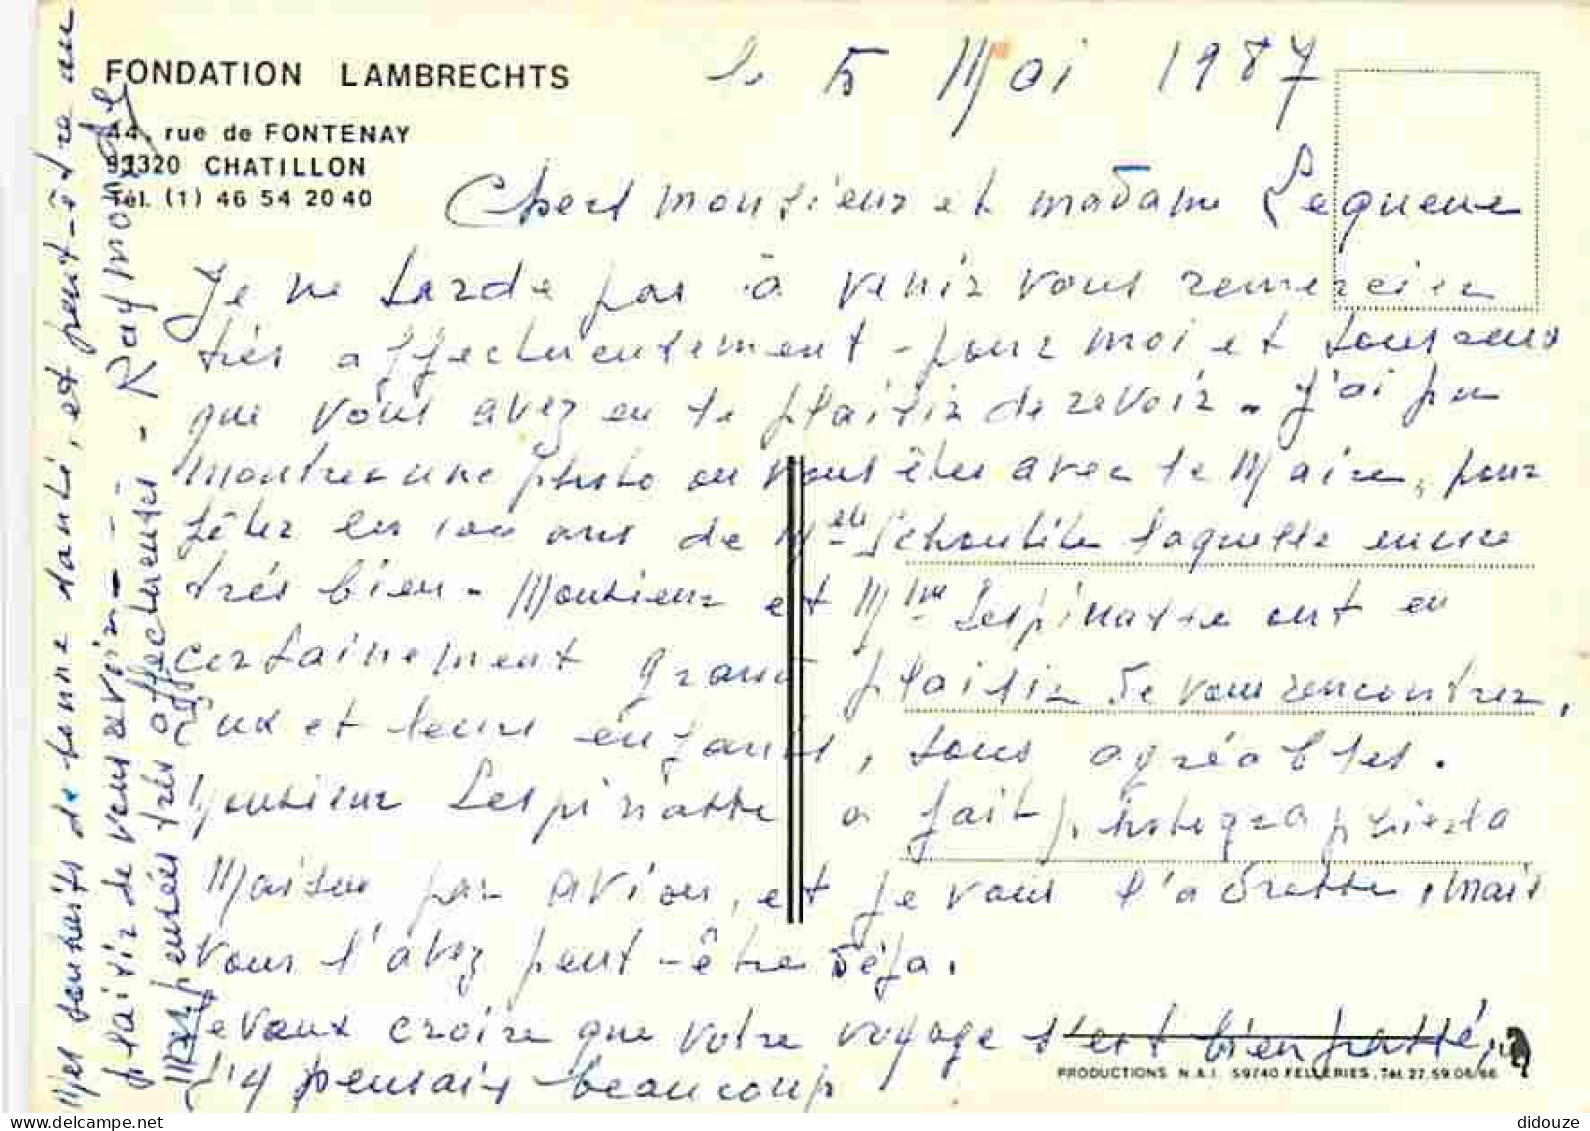 FONDATION LAMBRECHTS
44, rue de FONTENAY
92320 CHATILLON
Tél. (1) 46 54 20 40
le 5 Mai 1987
Chers monsieur et madame Lequeue
Je ne tarde pas à venir vous remercier
très affectueusement - pour moi et tous ceux
que vous avez eu le plaisir de revoir - J'ai pu
montrer une photo ou vous êtes avec le Maire, pour
fêter les 100 ans de Melle laquelle encore
très bien - Monsieur et Mme Lespinasse ont eu
certainement grand plaisir de vous rencontrer,
Eux et leurs enfants, tous agréables.
Monsieur Lespinasse a fait photographier la
Maison par avion, et je vous l'adresse, mais
vous l'avez peut-être déjà.
Je veux croire que votre voyage s'est bien passé,
j'y pensais beaucoup
Mes souhaits de bonne santé, et peut-être au
plaisir de vous revoir -
Mes pensées très affectueuses - Raymonde
PRODUCTIONS N.A.I. 59740 FELLERIES, Tél. 27.59.06.66
delcampe.net
didouze